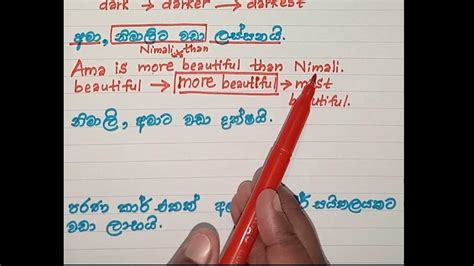 dark → darker → darkest
අමා, නිමාලිට වඩා ලස්සනයි.
Nimali than
Ama is more beautiful than Nimali.
beautiful → more beautiful → most
beautiful.
නිමාලි, අමාට වඩා දක්ෂයි.
පරණ කාර් එකක් අ
සයිකලයකට
වඩා ලාභයි.